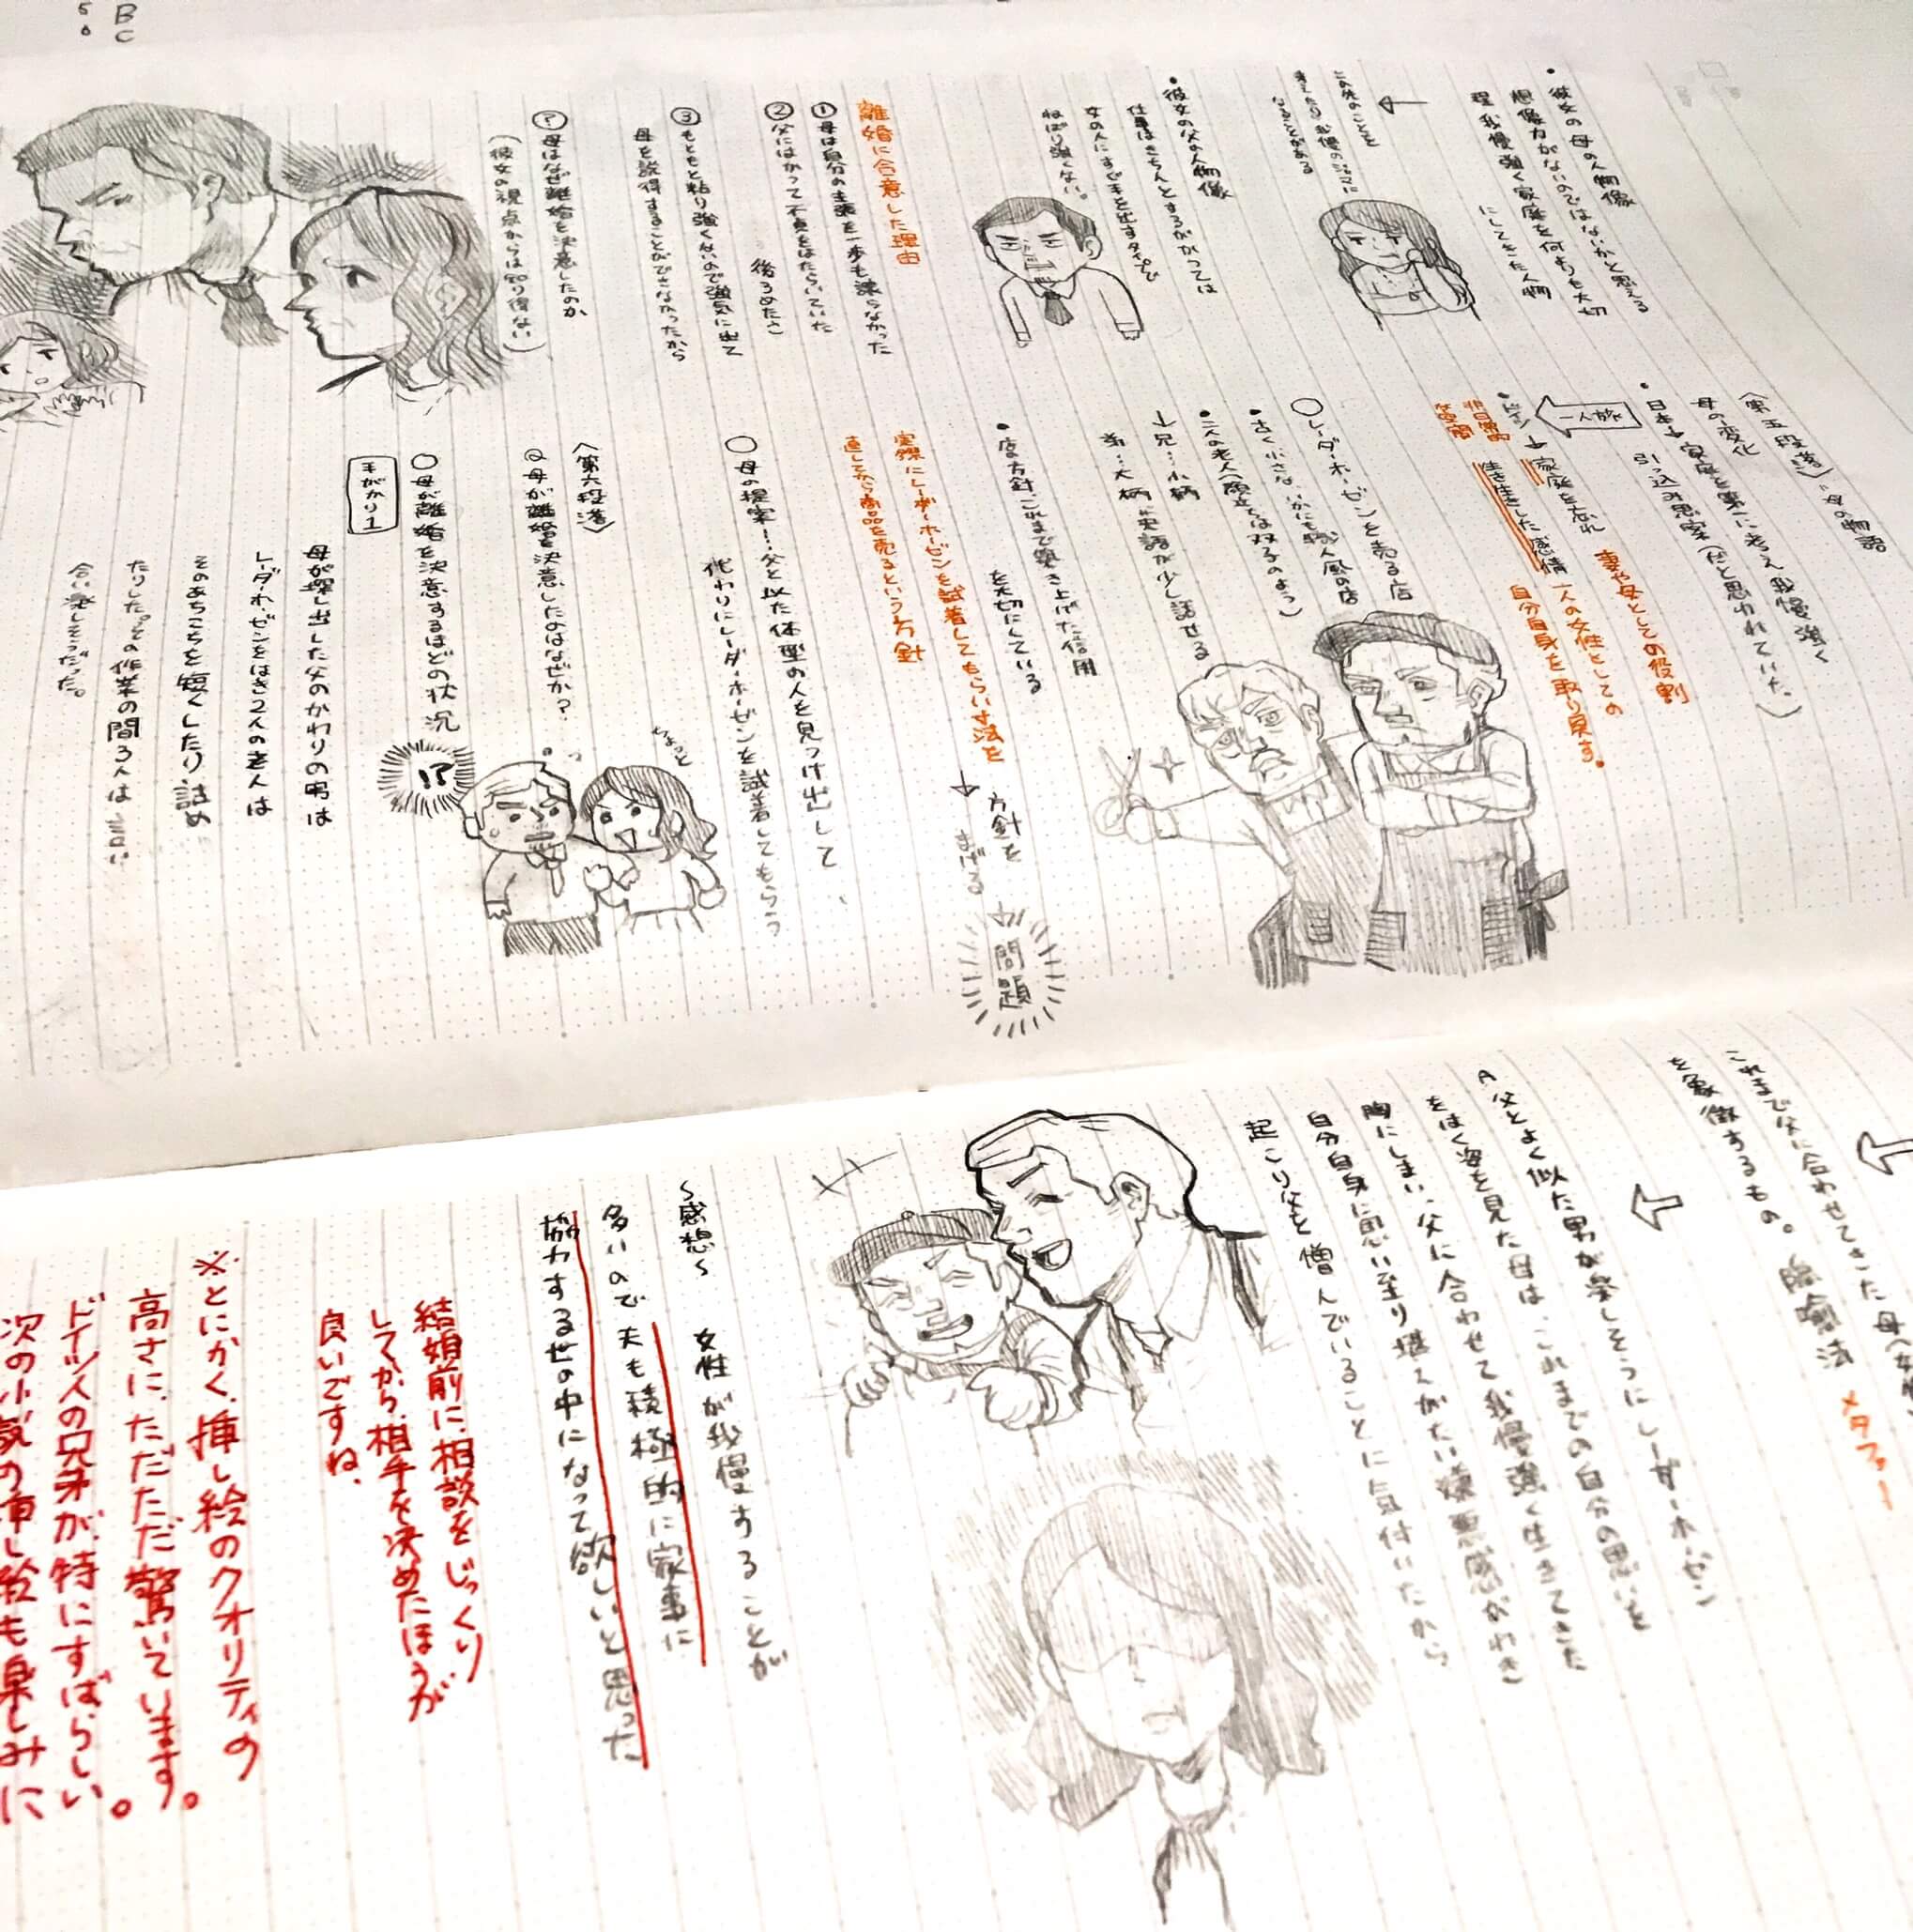 B
C
・彼女の母の人物像
想像力がないのではないかと思える
程我慢強く家庭を何よりも大切
にしてきた人物
この先のことを
・彼女の父の人物像
仕事はきちんとするがかつては
女の人にすぐ手を出すタイプで
ねばり強くない。
離婚に合意した理由
①母は自分の主張を一歩も譲らなかった
②父にはかつて不貞をはたらいていた
後ろめたさ
③もともと粘り強くないので強気に出て
母を説得することができなかったから
?母はなぜ離婚を決意したのか
(彼女の視点からは知り得ない)
〈第五段落〉"母の物語
母の変化
日本→家庭を第一に考え我慢強く
引っ込み思案(だと思われていた。)
一人旅
ドイツ→家庭を忘れ
生き生きした感情
非日常的な空間
妻や母としての役割
一人の女性としての
自分自身を取り戻す。
○レーダーホーゼンを売る店
・古く小さな、いかにも職人風の店
・二人の老人(顔立ちは双子のよう)
↓兄…小柄
弟…大柄
英語が少し話せる
・店方針…これまで築き上げた信用
を大切にしている
実際にレーダーホーゼンを試着してもらい寸法を
直してから商品を売るという方針
→方針を
まげる
→問題
○母の提案…父と似た体型の人を見つけ出して
代わりにレーダーホーゼンを試着してもらう
〈第六段落〉
Q 母が離婚を決意したのはなぜか?
○母が離婚を決意するほどの状況
手がかり1
母が探し出した父のかわりの男は
レーダーホーゼンをはき2人の老人は
そのあちこちを短くしたり詰め
たりした。その作業の間3人は言い
合い楽しそうだった。
ちょっと
!?
これまで父に合わせてきた母(女性)
を象徴するもの。
隠喩法
メタファー
A 父とよく似た男が楽しそうにレーダーホーゼン
をはく姿を見た母は、これまでの自分の思いを
胸にしまい、父に合わせて我慢強く生きてきた
自分自身に思い至り堪えがたい嫌悪感がわき
起こり父を憎んでいることに気付いたから
～感想～
女性が我慢することが
多いので夫も積極的に家事に
協力する世の中になって欲しいと思った
結婚前に相談をじっくり
してから、相手を決めたほうが
良いですね。
※とにかく、挿し絵のクオリティの
高さに、ただただ驚いています。
ドイツ人の兄弟が特にすばらしい。
次の小説の挿し絵も楽しみに